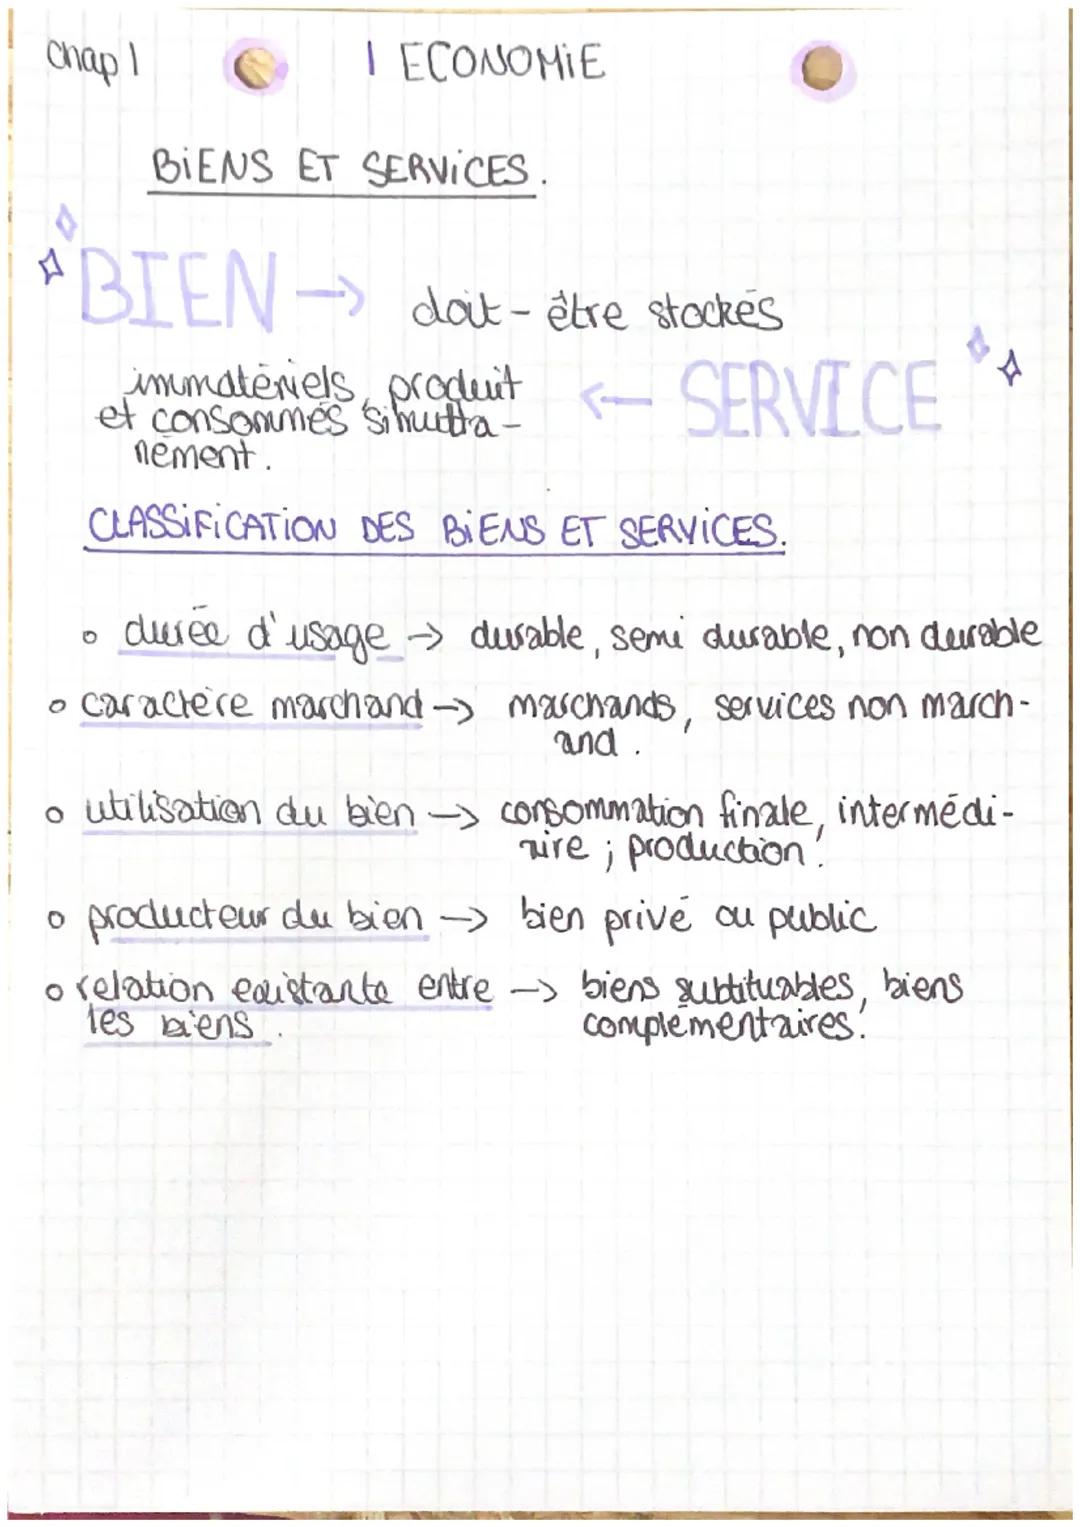 Chap 1
I ECONOMIE
BIENS ET SERVICES.
BIEN → doit-être stockés
immatériels, produit ← SERVICE
et consommés simulta-
nément.
CLASSIFICATION DES BIENS ET SERVICES.
durée d'usage → durable, semi durable, non durable
caractère marchand → marchands, services non march-
and.
utilisation du bien → consommation finale, intermédi-
aire ; production.
producteur du bien → bien privé ou public
relation existante entre → biens subtituables, biens
les biens. complémentaires.